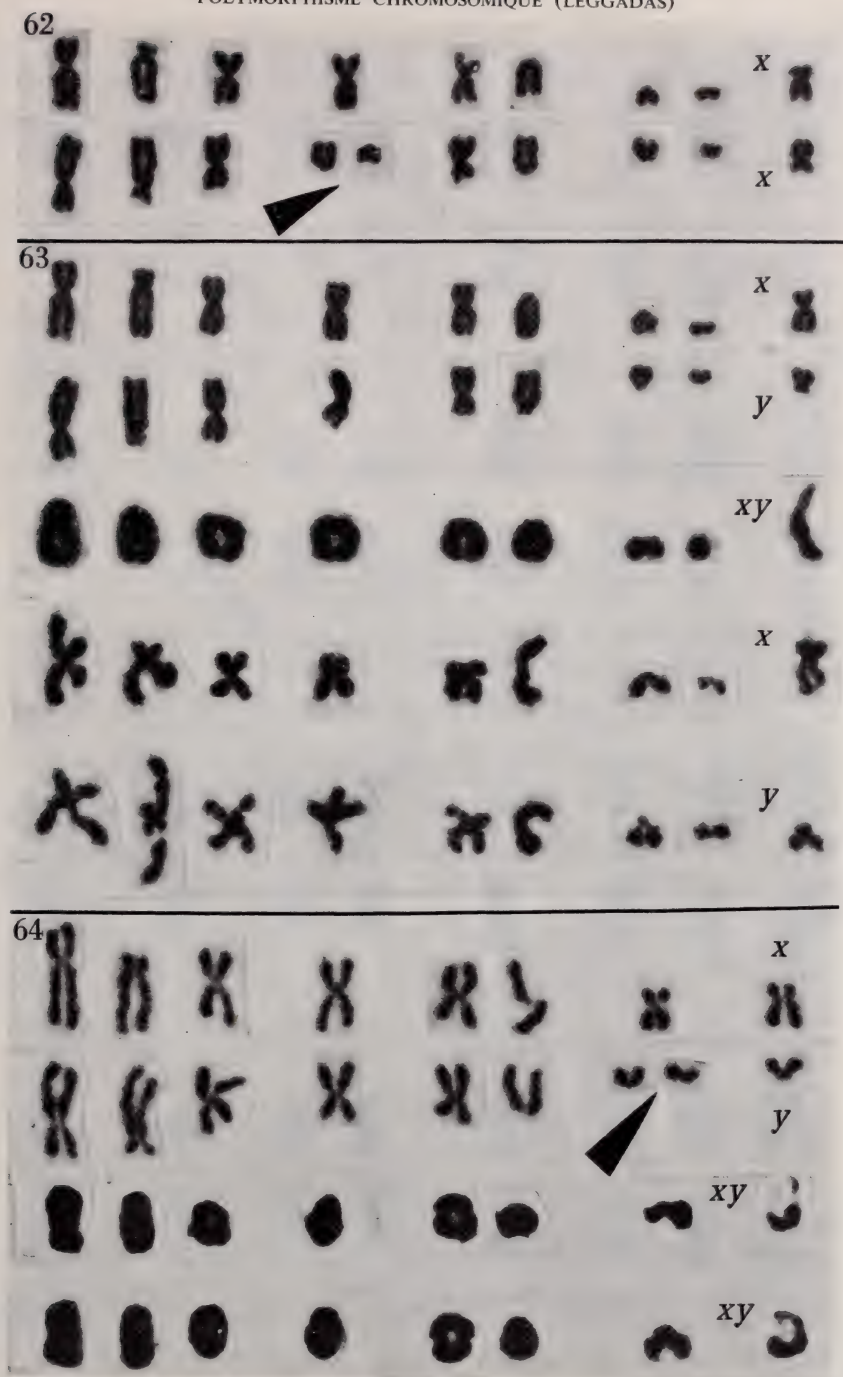 POLYMORPHISME CHROMOSOMIQUE (LEGGADAS)
62
x
x
63
x
y
xy
x
y
64
x
y
xy
xy